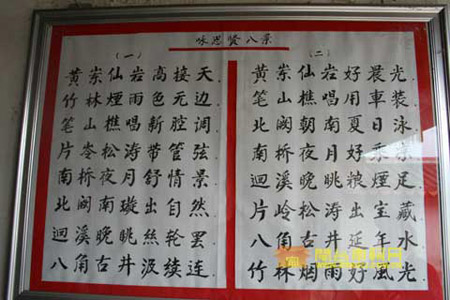 咏思贤八景
(一)
黄岽仙岩高接天
竹林煙雨色元边
笔山樵唱新腔调
片岑松涛带管弦
南桥夜月舒情景
北阙南璇出自然
迴溪晚眺絲轮罢
八角古井汲续连
(二)
黄岽仙岩好晨光
笔山樵唱用車装
北阙朝南夏日泳
南桥夜月好乘
迴溪晚眺粮煙足
片岭松涛出宝藏
八角古井延年水
竹林烟雨好風光